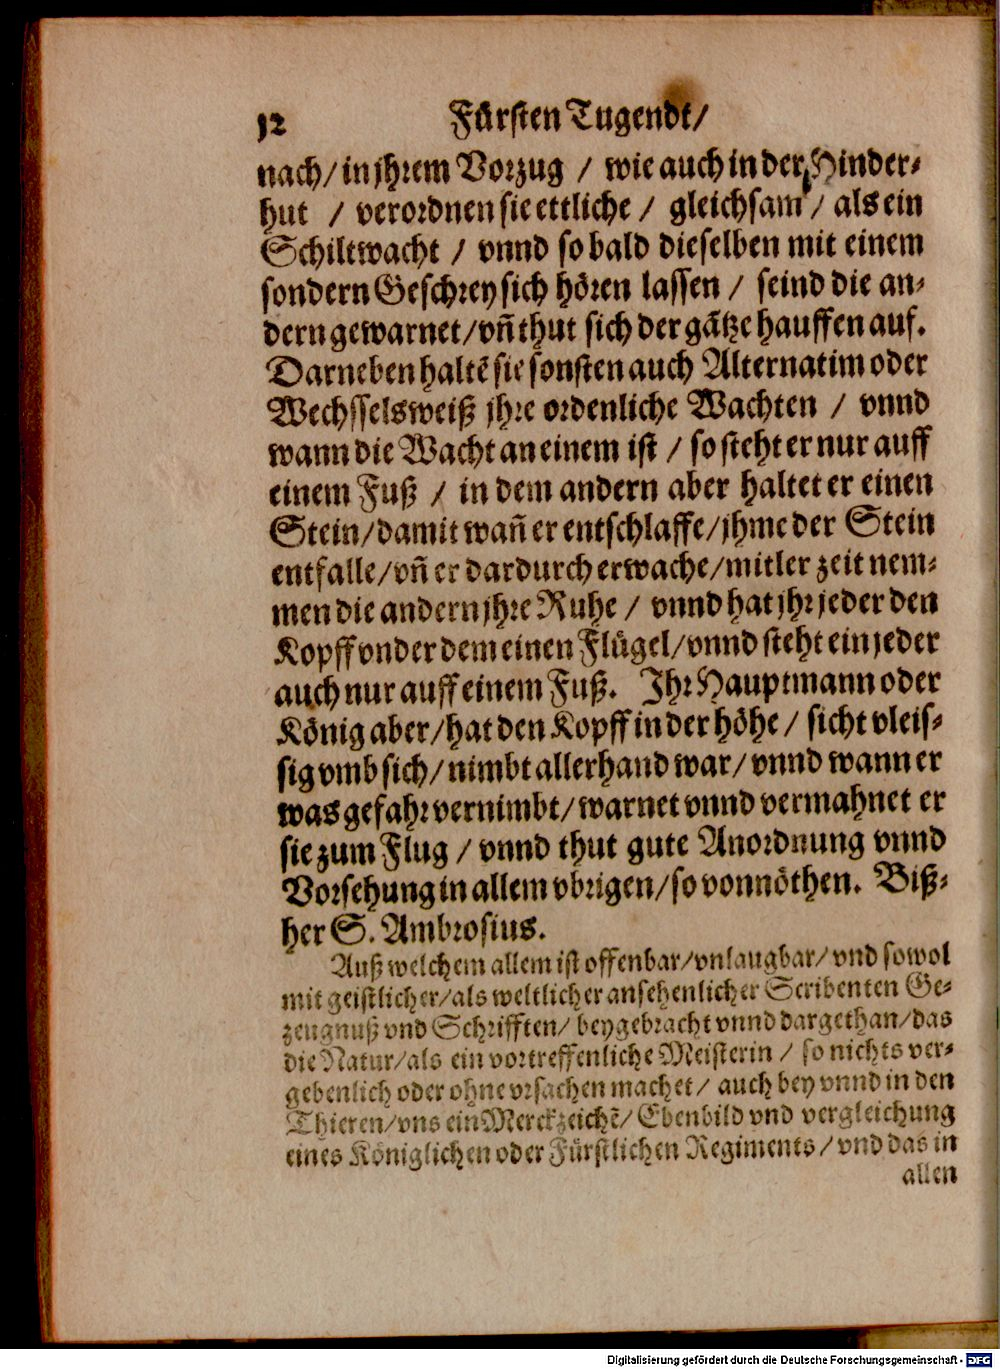 12 Fürsten Tugendt/
nach/ in jhrem Vorzug / wie auch in der Hinder-
hut / verordnen sie ettliche / gleichsam / als ein
Schiltwacht / vnnd so bald dieselben mit einem
sondern Geschrey sich hören lassen / seind die an-
dern gewarnet/ vñ thut sich der gãtze hauffen auf.
Darneben haltẽ sie sonsten auch Alternatim oder
Wechsselsweiß jhre ordenliche Wachten / vnnd
wann die Wacht an einem ist / so steht er nur auff
einem Fuß / in dem andern aber haltet er einen
Stein/ damit wañ er entschlaffe/ jhme der Stein
entfalle/ vñ er dardurch erwache/ mitler zeit nem-
men die andern jhre Ruhe / vnnd hat jhr jeder den
Kopff vnder dem einen Flügel/ vnnd steht ein jeder
auch nur auff einem Fuß. Ihr Hauptmann oder
König aber/ hat den Kopff in der höhe / sicht vleis-
sig vmb sich/ nimbt allerhand war/ vnnd wann er
was gefahr vernimbt/ warnet vnnd vermahnet er
sie zum Flug / vnnd thut gute Anordnung vnnd
Vorsehung in allem vbrigen/ so vonnöthen. Biß-
her S. Ambrosius.
Auß welchem allem ist offenbar/ vnlaugbar/ vnd sowol
mit geistlicher/ als weltlicher ansehenlicher Scribenten Ge-
zeugnuß vnd Schrifften/ beygebracht vnnd dargethan/ das
die Natur/ als ein vortreffenliche Meisterin / so nichts ver-
gebenlich oder ohne vrsachen machet / auch bey vnnd in den
Thieren/ vns ein Merckzeichẽ/ Ebenbild vnd vergleichung
eines Königlichen oder Fürstlichen Regiments / vnd das in
allen
Digitalisierung gefördert durch die Deutsche Forschungsgemeinschaft - DFG